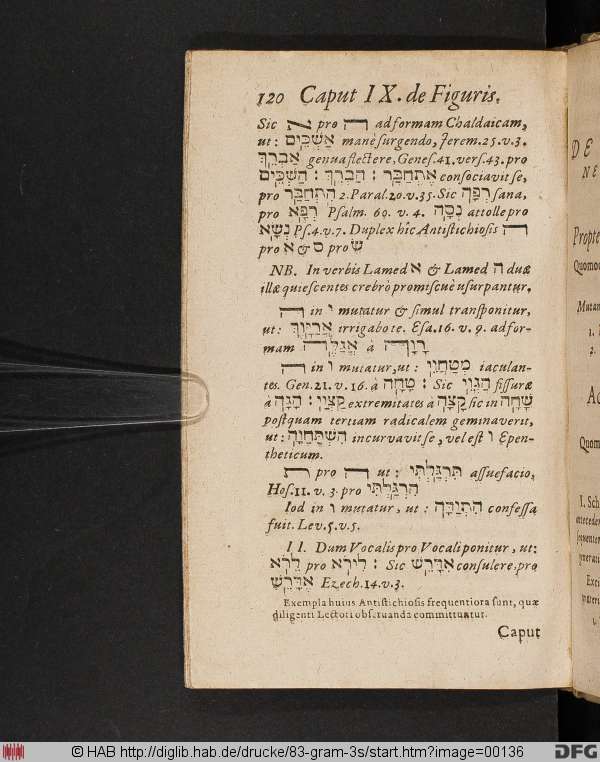 120 Caput IX. de Figuris.
Sic א pro ה ad formam Chaldaicam,
ut: אַשְׁכֵּים manè surgendo, Jerem. 25. v. 3.
אַבְרֵךְ genua flectere, Genes. 41. vers. 43. pro
אֶתְחַבַּר : הַבְרֵךְ : הַשְׁכֵּים consociavit se,
pro הִתְחַבַּר 2. Paral. 20. v. 35. Sic רְפָּה sana,
pro רְפָּא Psalm. 60. v. 4. נְסָה attolle pro
נְשָׂא Ps. 4. v. 7. Duplex hîc Antistichiosis ה
pro א & ס pro שׂ
NB. In verbis Lamed א & Lamed ה duæ
illæ quiescentes crebrò promiscuè usurpantur.
ה in י mutatur & simul transponitur,
ut: אֲרַיָּוֶךְ irrigabo te. Esa. 16. v. 9. ad for-
mam אֲגַלֶּה à רָוָה
ה in ו mutatur, ut: מְטַחֲוֵי iaculan-
tes. Gen. 21. v. 16. à טָחָה : Sic הַגְוֵי fissuræ
à הָגָה : קַצְוֵי extremitates à קָצָה sic in שָׁחָה
postquam tertiam radicalem geminaverit,
ut: הִשְׁתַּחֲוָה incurvavit se, vel est ו Epen-
theticum.
ת pro ה ut: תִּרְגַּלְתִּי assuefacio,
Hos. 11. v. 3. pro הִרְגַּלְתִּי
Iod in ו mutatur, ut: הִתְוַדָּה confessa
fuit. Lev. 5. v. 5.
II. Dum Vocalis pro Vocali ponitur, ut:
לֵרֹא pro לִירֹא : Sic אִדָּרֵשׁ consulere pro
אֶדָּרֵשׁ Ezech. 14. v. 3.
Exempla huius Antistichiosis frequentiora sunt, quæ
diligenti Lectori observanda committuntur.
Caput
© HAB http://diglib.hab.de/drucke/83-gram-3s/start.htm?image=00136
DFG